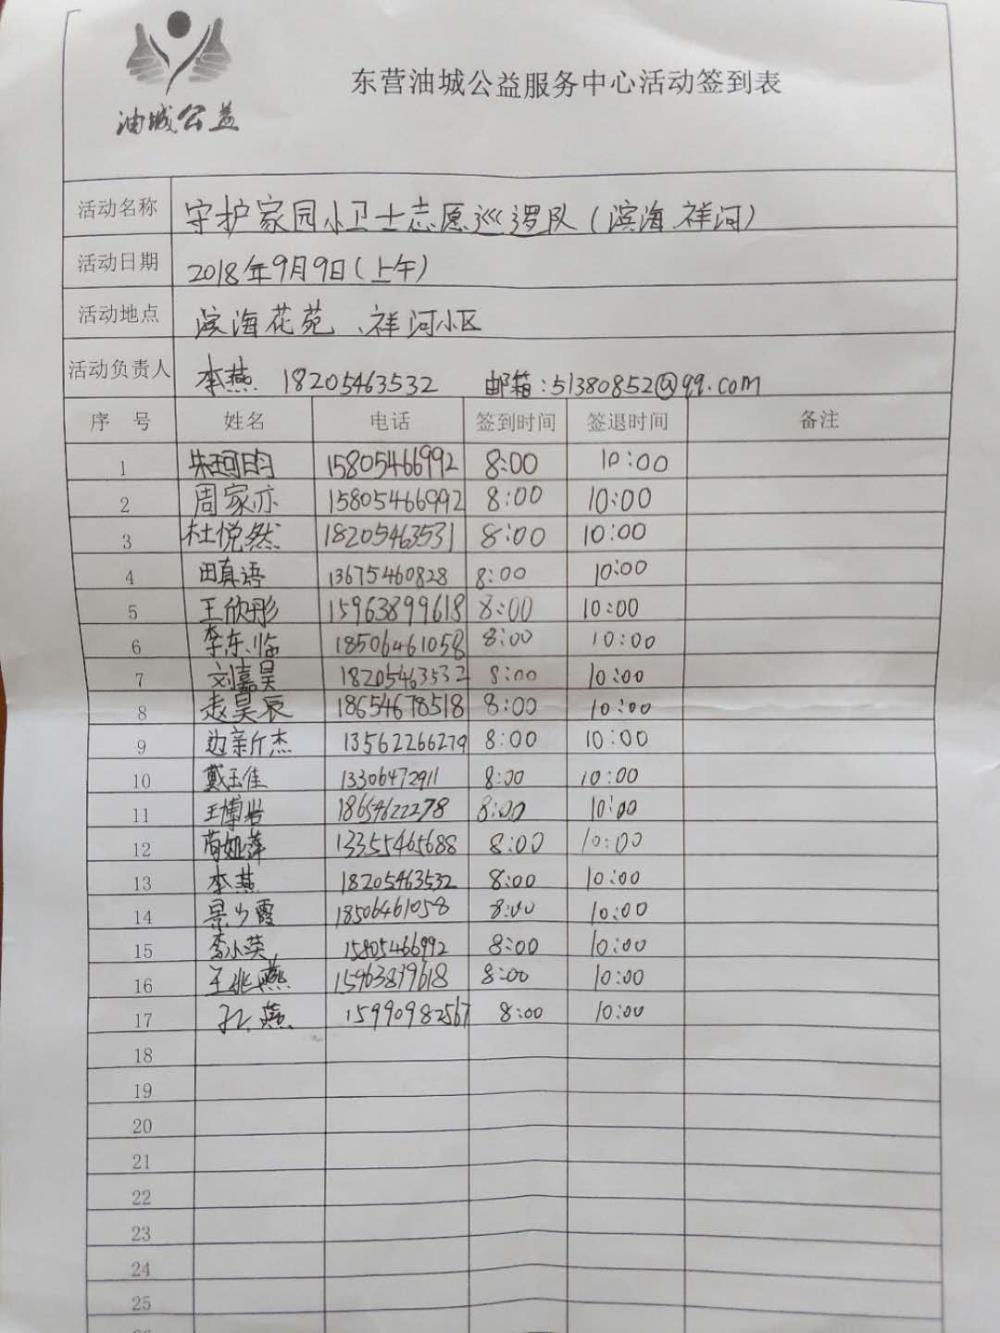 油城公益
东营油城公益服务中心活动签到表
活动名称 守护家园小卫士志愿巡逻队(滨海、祥河)
活动日期 2018年9月9日(上午)
活动地点 滨海花苑、祥河小区
活动负责人 李燕 18205463532 邮箱:51380852@qq.com
序号 姓名 电话 签到时间 签退时间 备注
1 15805466992 8:00 10:00
2 周家亦 15805466992 8:00 10:00
3 杜悦然 18205463531 8:00 10:00
4 田真语 13675460828 8:00 10:00
5 王欣彤 15963899618 8:00 10:00
6 李东临 18506461058 8:00 10:00
7 刘嘉昊 18205463532 8:00 10:00
8 赵昊辰 18654678518 8:00 10:00
9 边新杰 13562266279 8:00 10:00
10 戴玉佳 13306472911 8:00 10:00
11 王博岩 18654622278 8:00 10:00
12 13355465688 8:00 10:00
13 李燕 18205463532 8:00 10:00
14 景少霞 18506461058 8:00 10:00
15 李小英 15805466992 8:00 10:00
16 王兆燕 15963899618 8:00 10:00
17 孔燕 15990982567 8:00 10:00
18
19
20
21
22
23
24
25